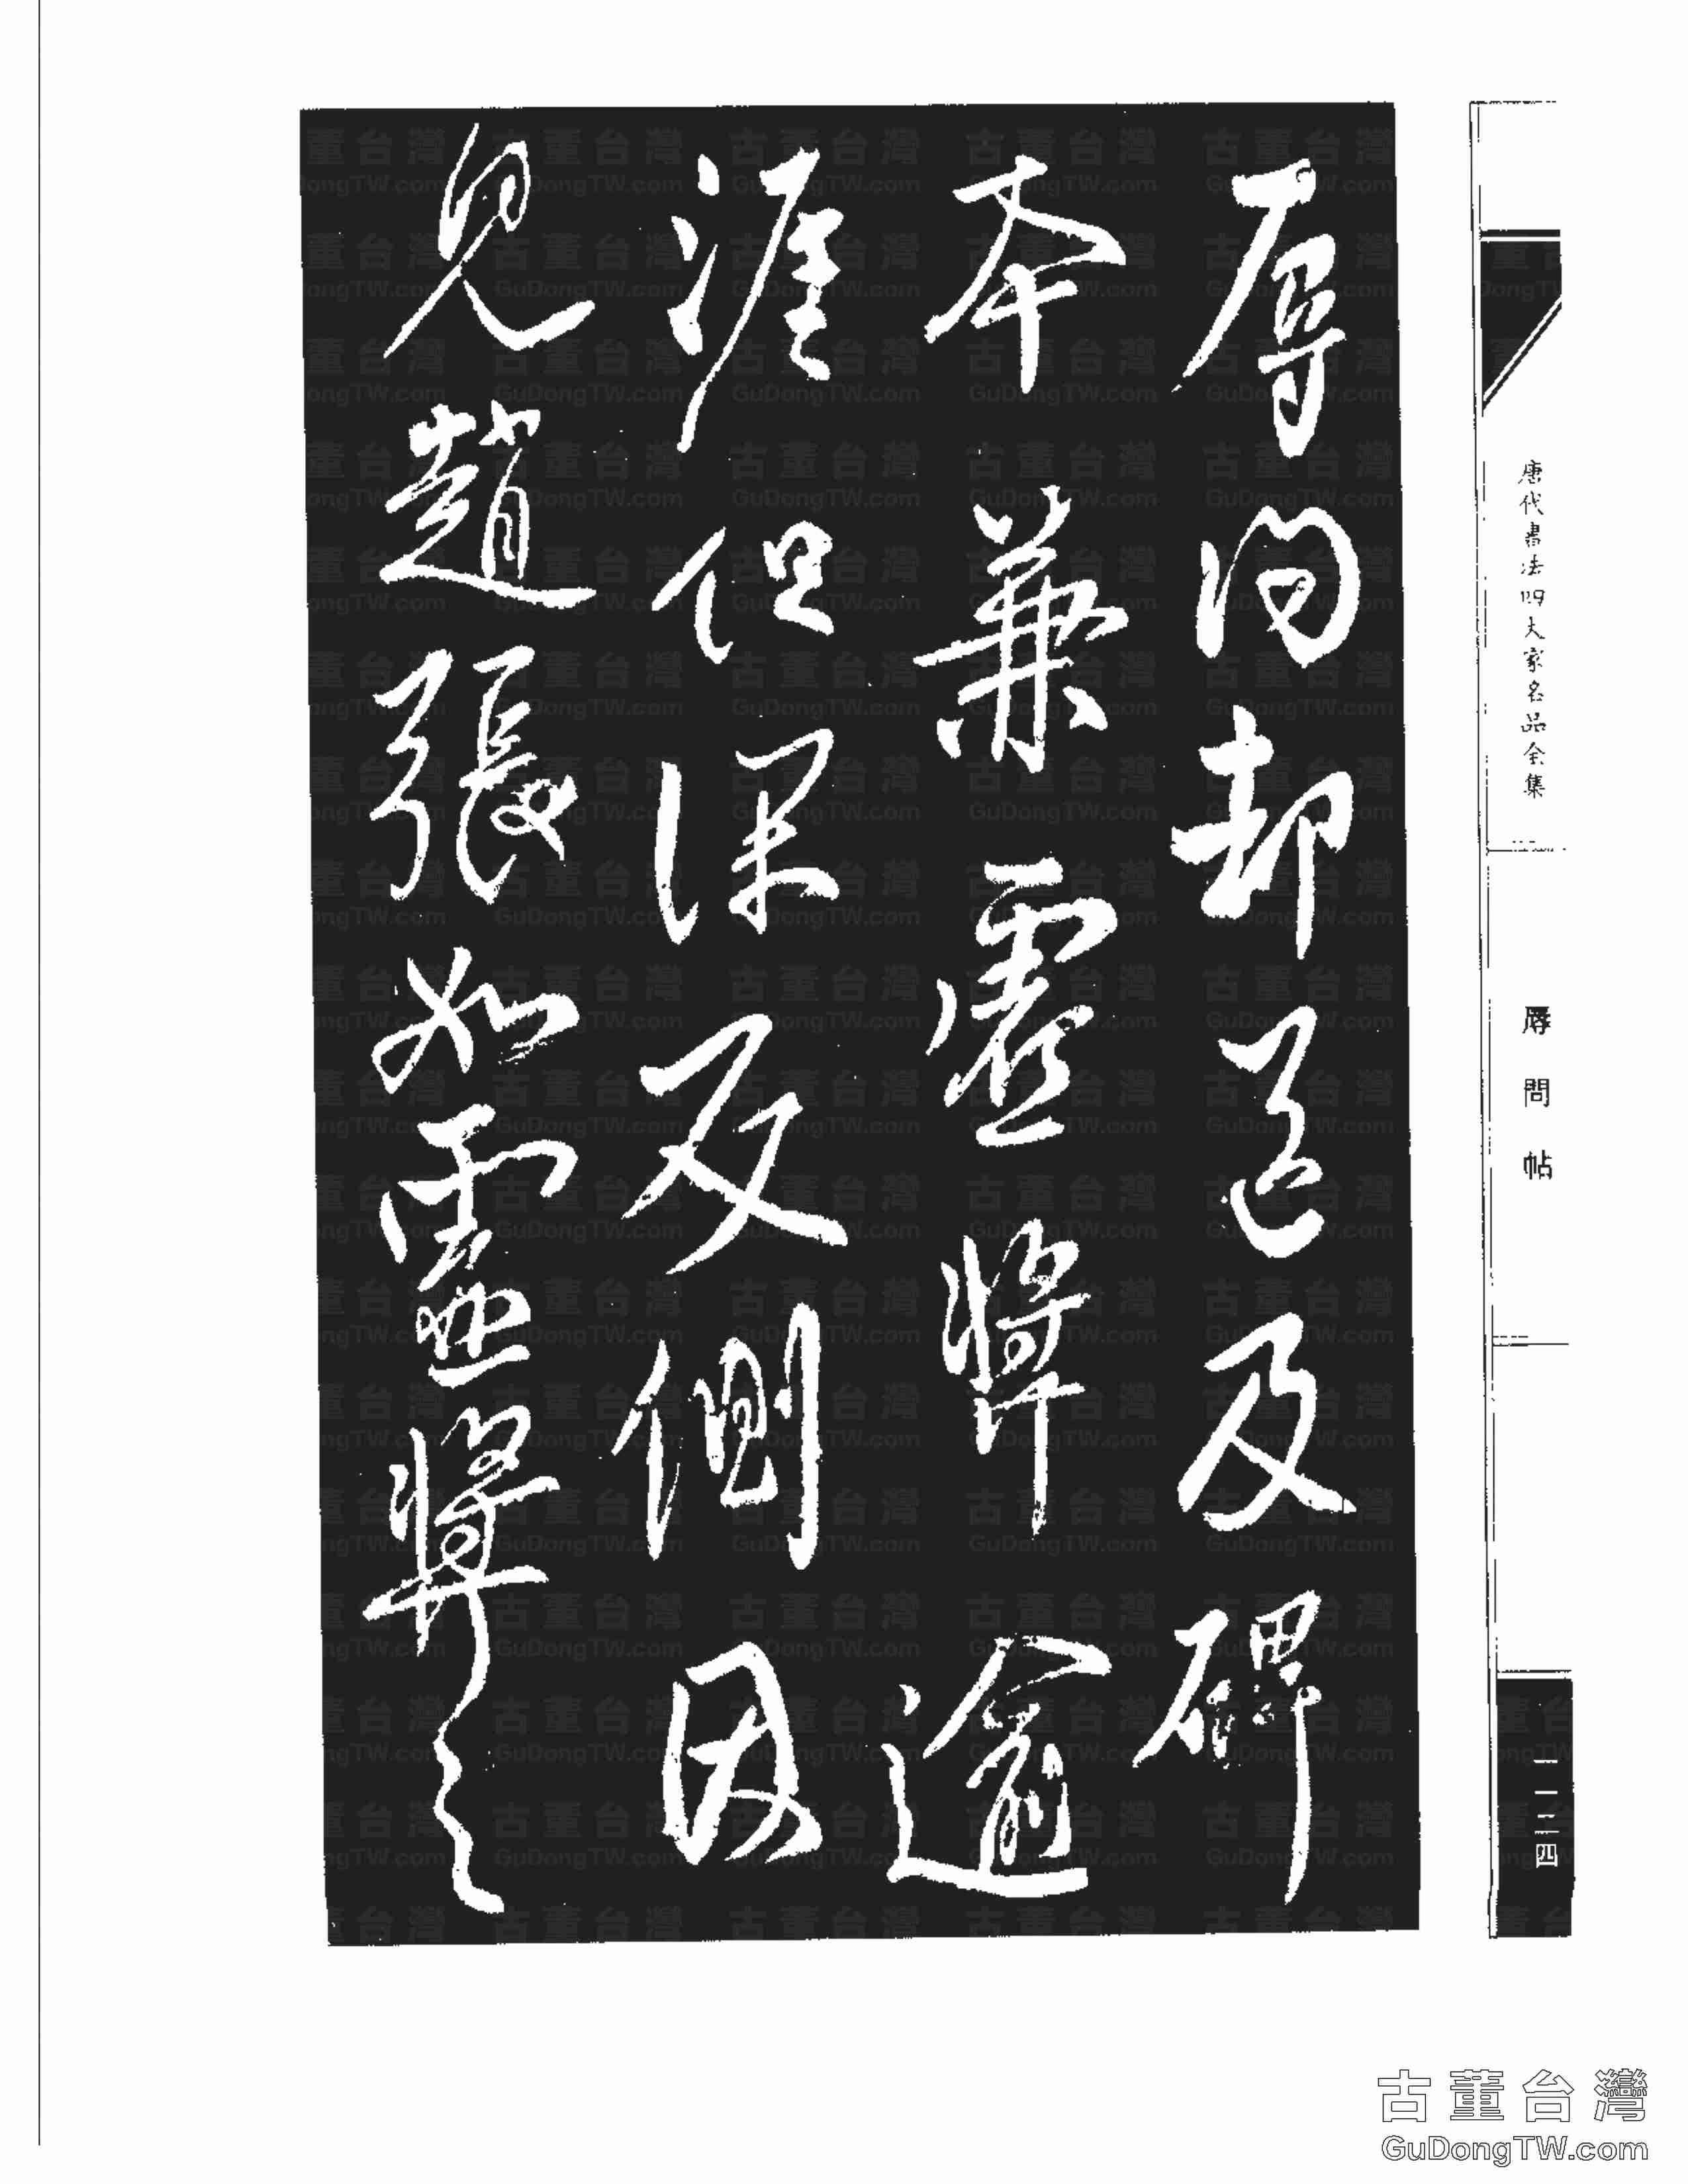 辱問却送及碑
本兼虛獎逾
涯但深反側因
見趙張如靈獎之
唐代書法四大家名品全集
辱問帖
一一二四
古董台灣
GuDongTW.com